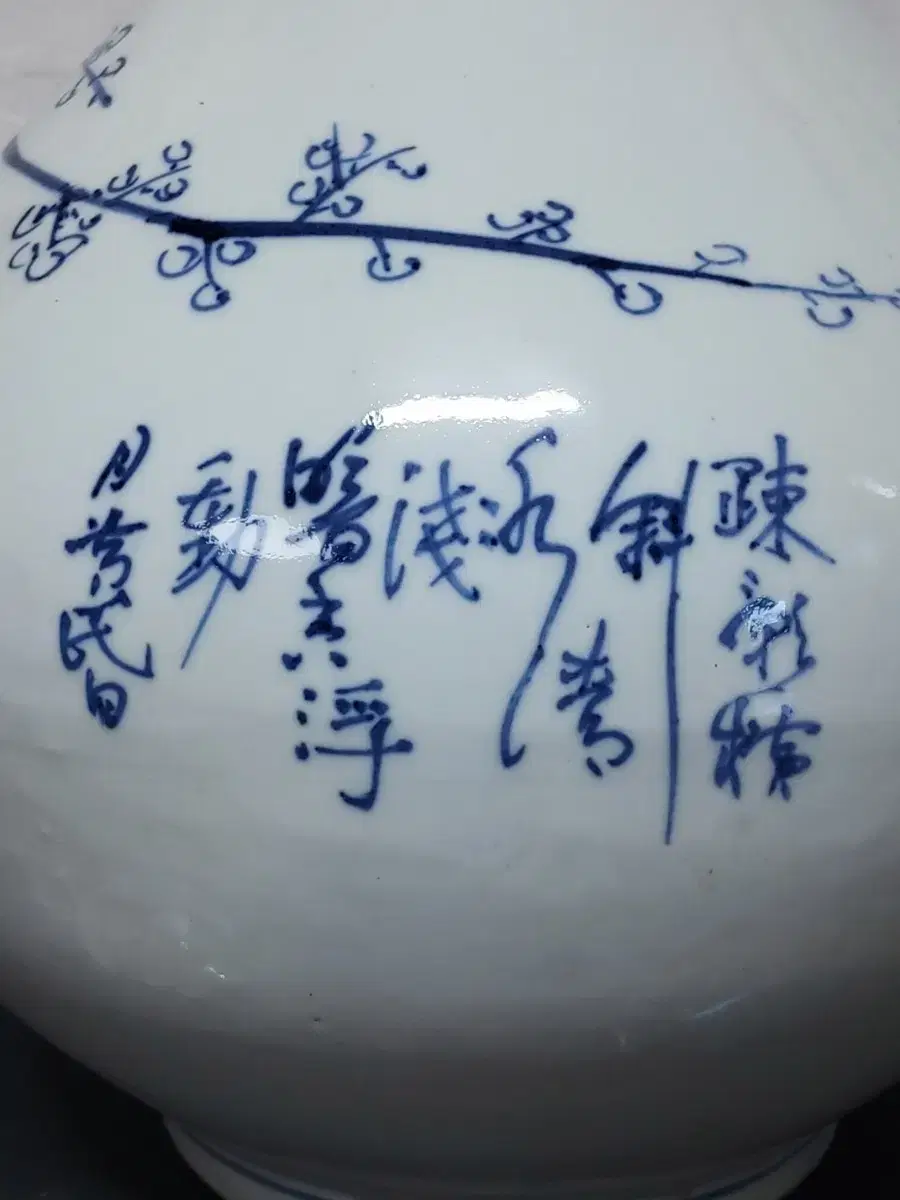 疎影橫
斜
水清
淺
暗香浮
動
月黃昏